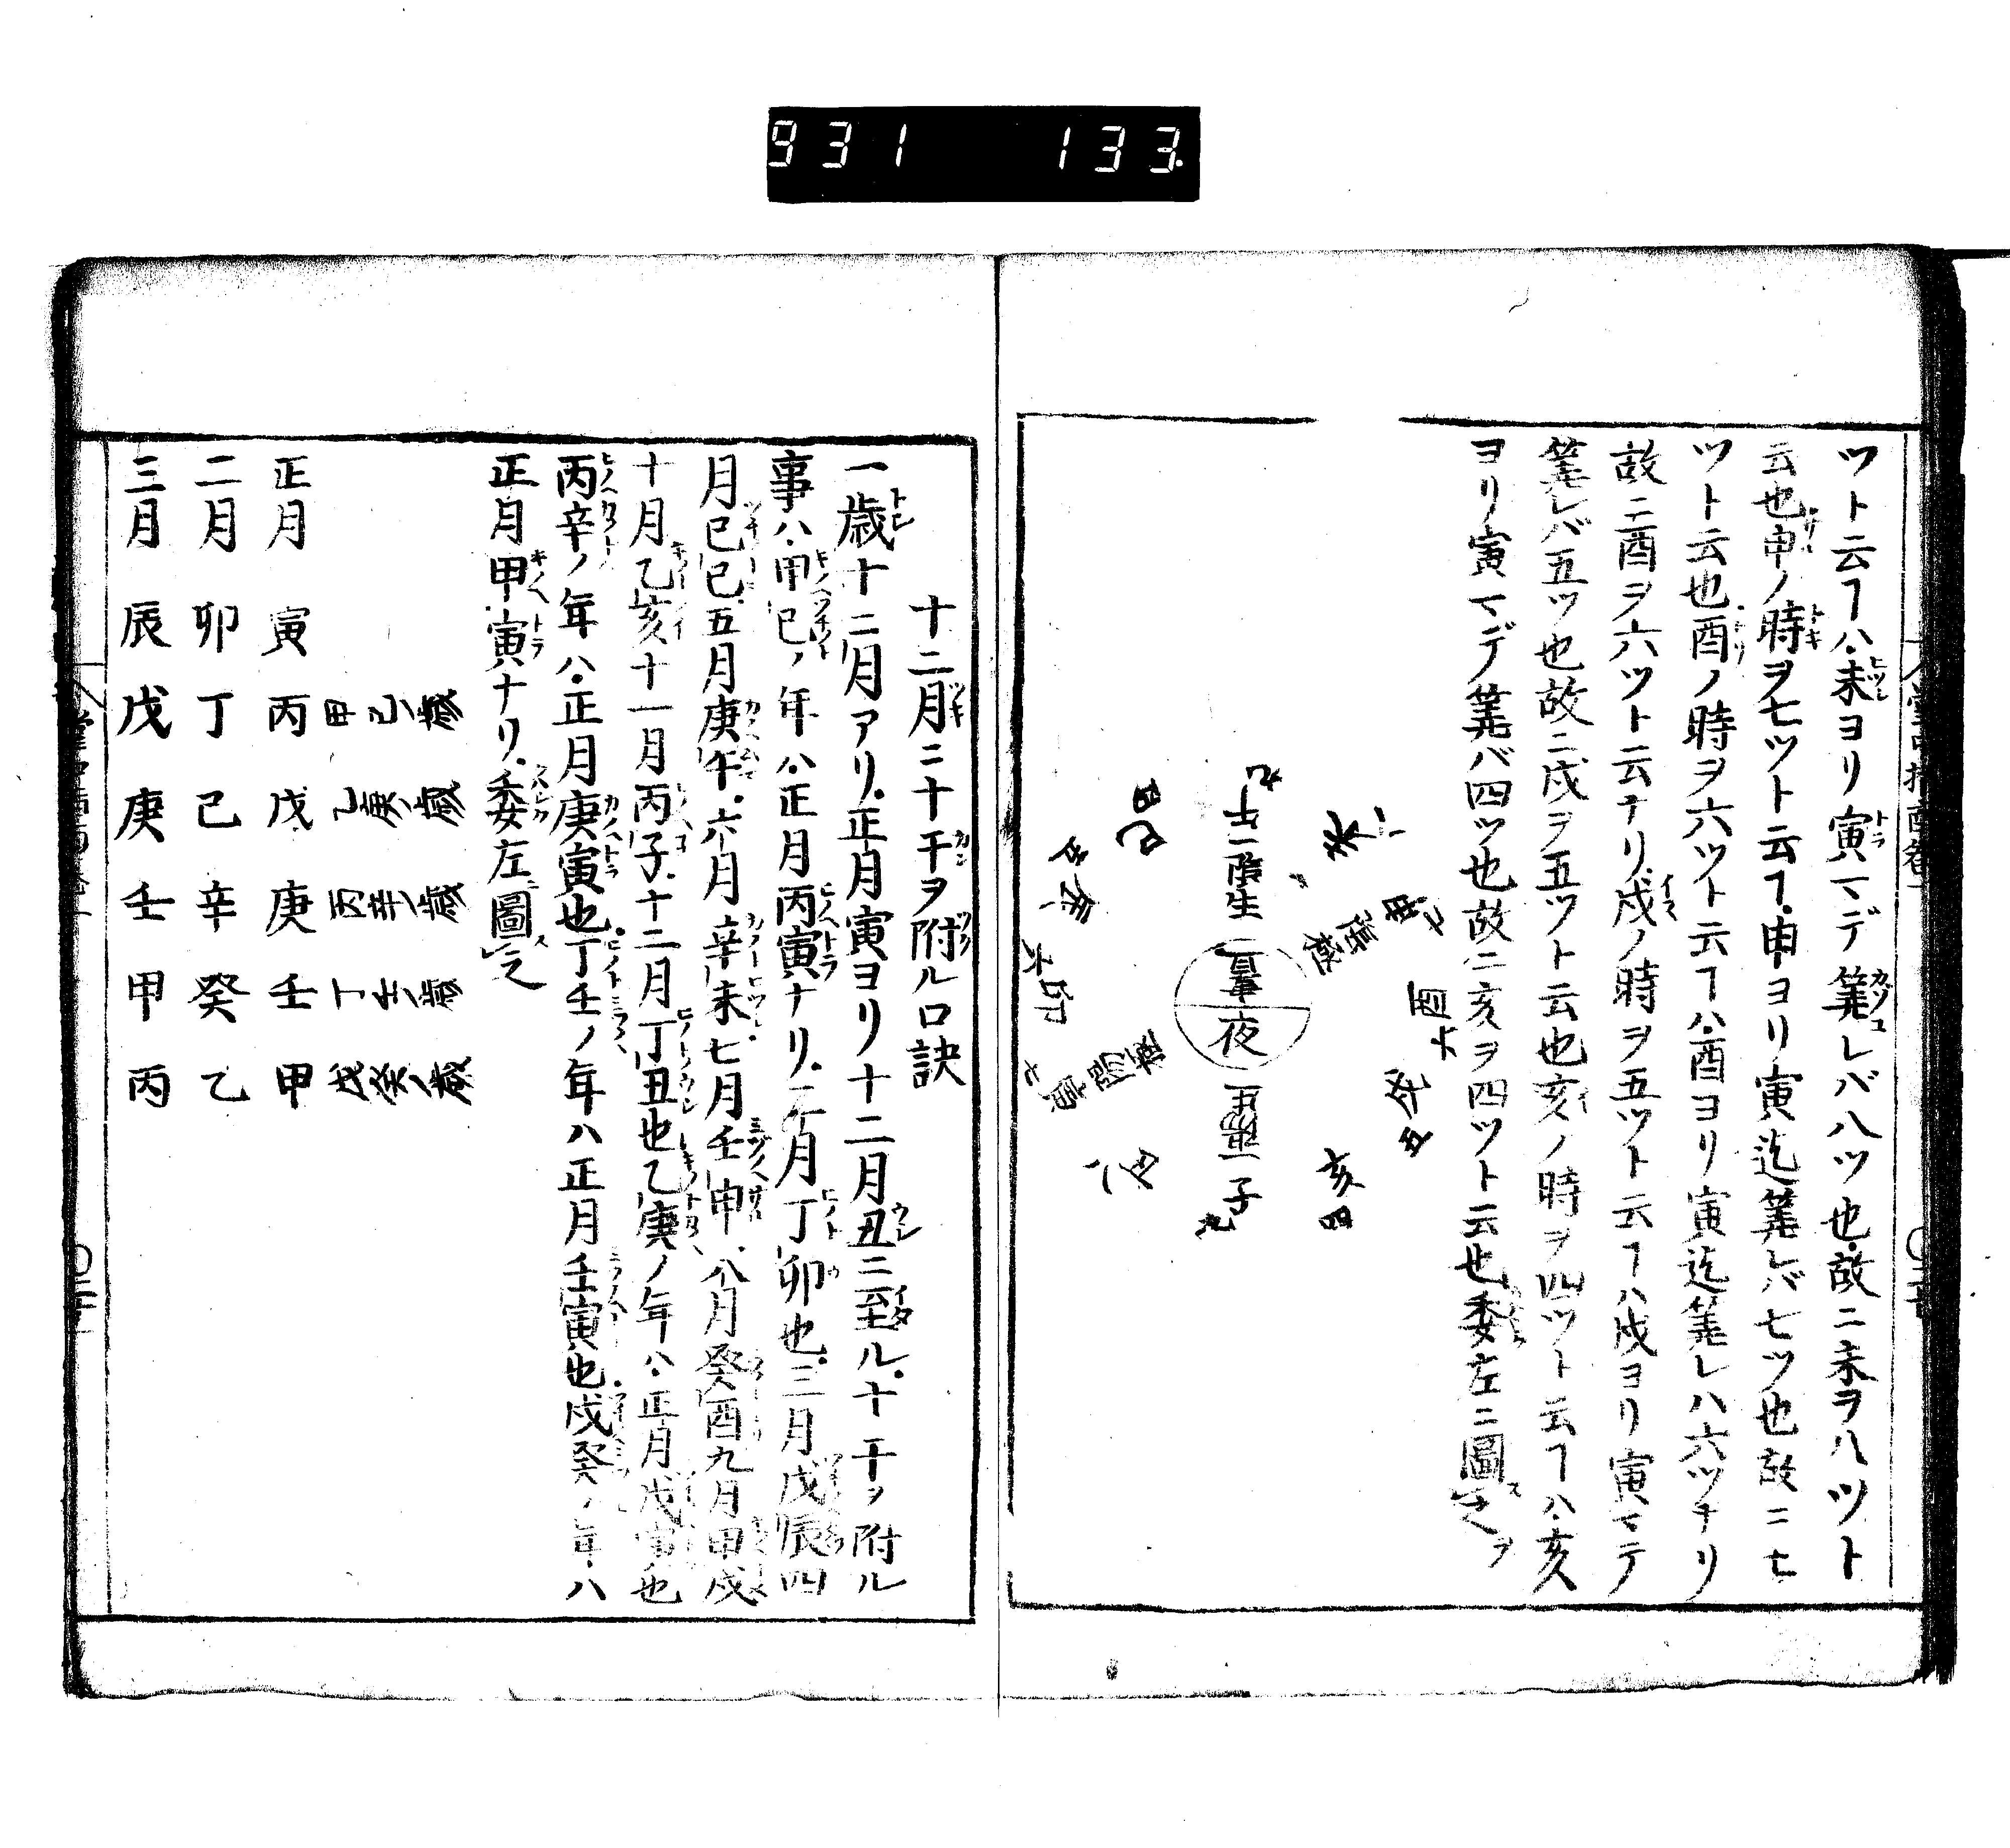 931 133
ツト云ヿハ未ヨリ寅マデ筭レバ八ツ也故ニ未ヲ八ツト
云也申ノ時ヲ七ツト云ヿ申ヨリ寅迄筭レバ七ツ也故ニ七
ツト云也酉ノ時ヲ六ツト云ヿハ酉ヨリ寅迄筭レハ六ツナリ
故ニ酉ヲ六ツト云ナリ戌ノ時ヲ五ツト云ヿハ戌ヨリ寅マテ
筭レバ五ツ也故ニ戌ヲ五ツト云也亥ノ時ヲ四ツト云ヿハ亥
ヨリ寅マデ筭バ四ツ也故ニ亥ヲ四ツト云也委左ニ圖之ヲ
未八
申七
酉六
戌五
亥四
午九
一陰生
晝
夜
一陽生
子九
丑八
寅七
卯六
辰五
巳四
十二月ニ十干ヲ附ル口訣
一歳十二月アリ正月寅ヨリ十二月丑ニ至ル十干ヲ附ル
事ハ甲巳ノ年ハ正月丙寅ナリ二月丁卯也三月戊辰四
月己巳五月庚午六月辛未七月壬申八月癸酉九月甲戌
十月乙亥十一月丙子十二月丁丑也乙庚ノ年ハ正月戊寅也
丙辛ノ年ハ正月庚寅也丁壬ノ年ハ正月壬寅也戊癸ノ年ハ
正月甲寅ナリ委左圖之
甲己ノ歳 乙庚ノ歳 丙辛ノ歳 丁壬ノ歳 戊癸ノ歳
正月 寅 丙 戊 庚 壬 甲
二月 卯 丁 己 辛 癸 乙
三月 辰 戊 庚 壬 甲 丙